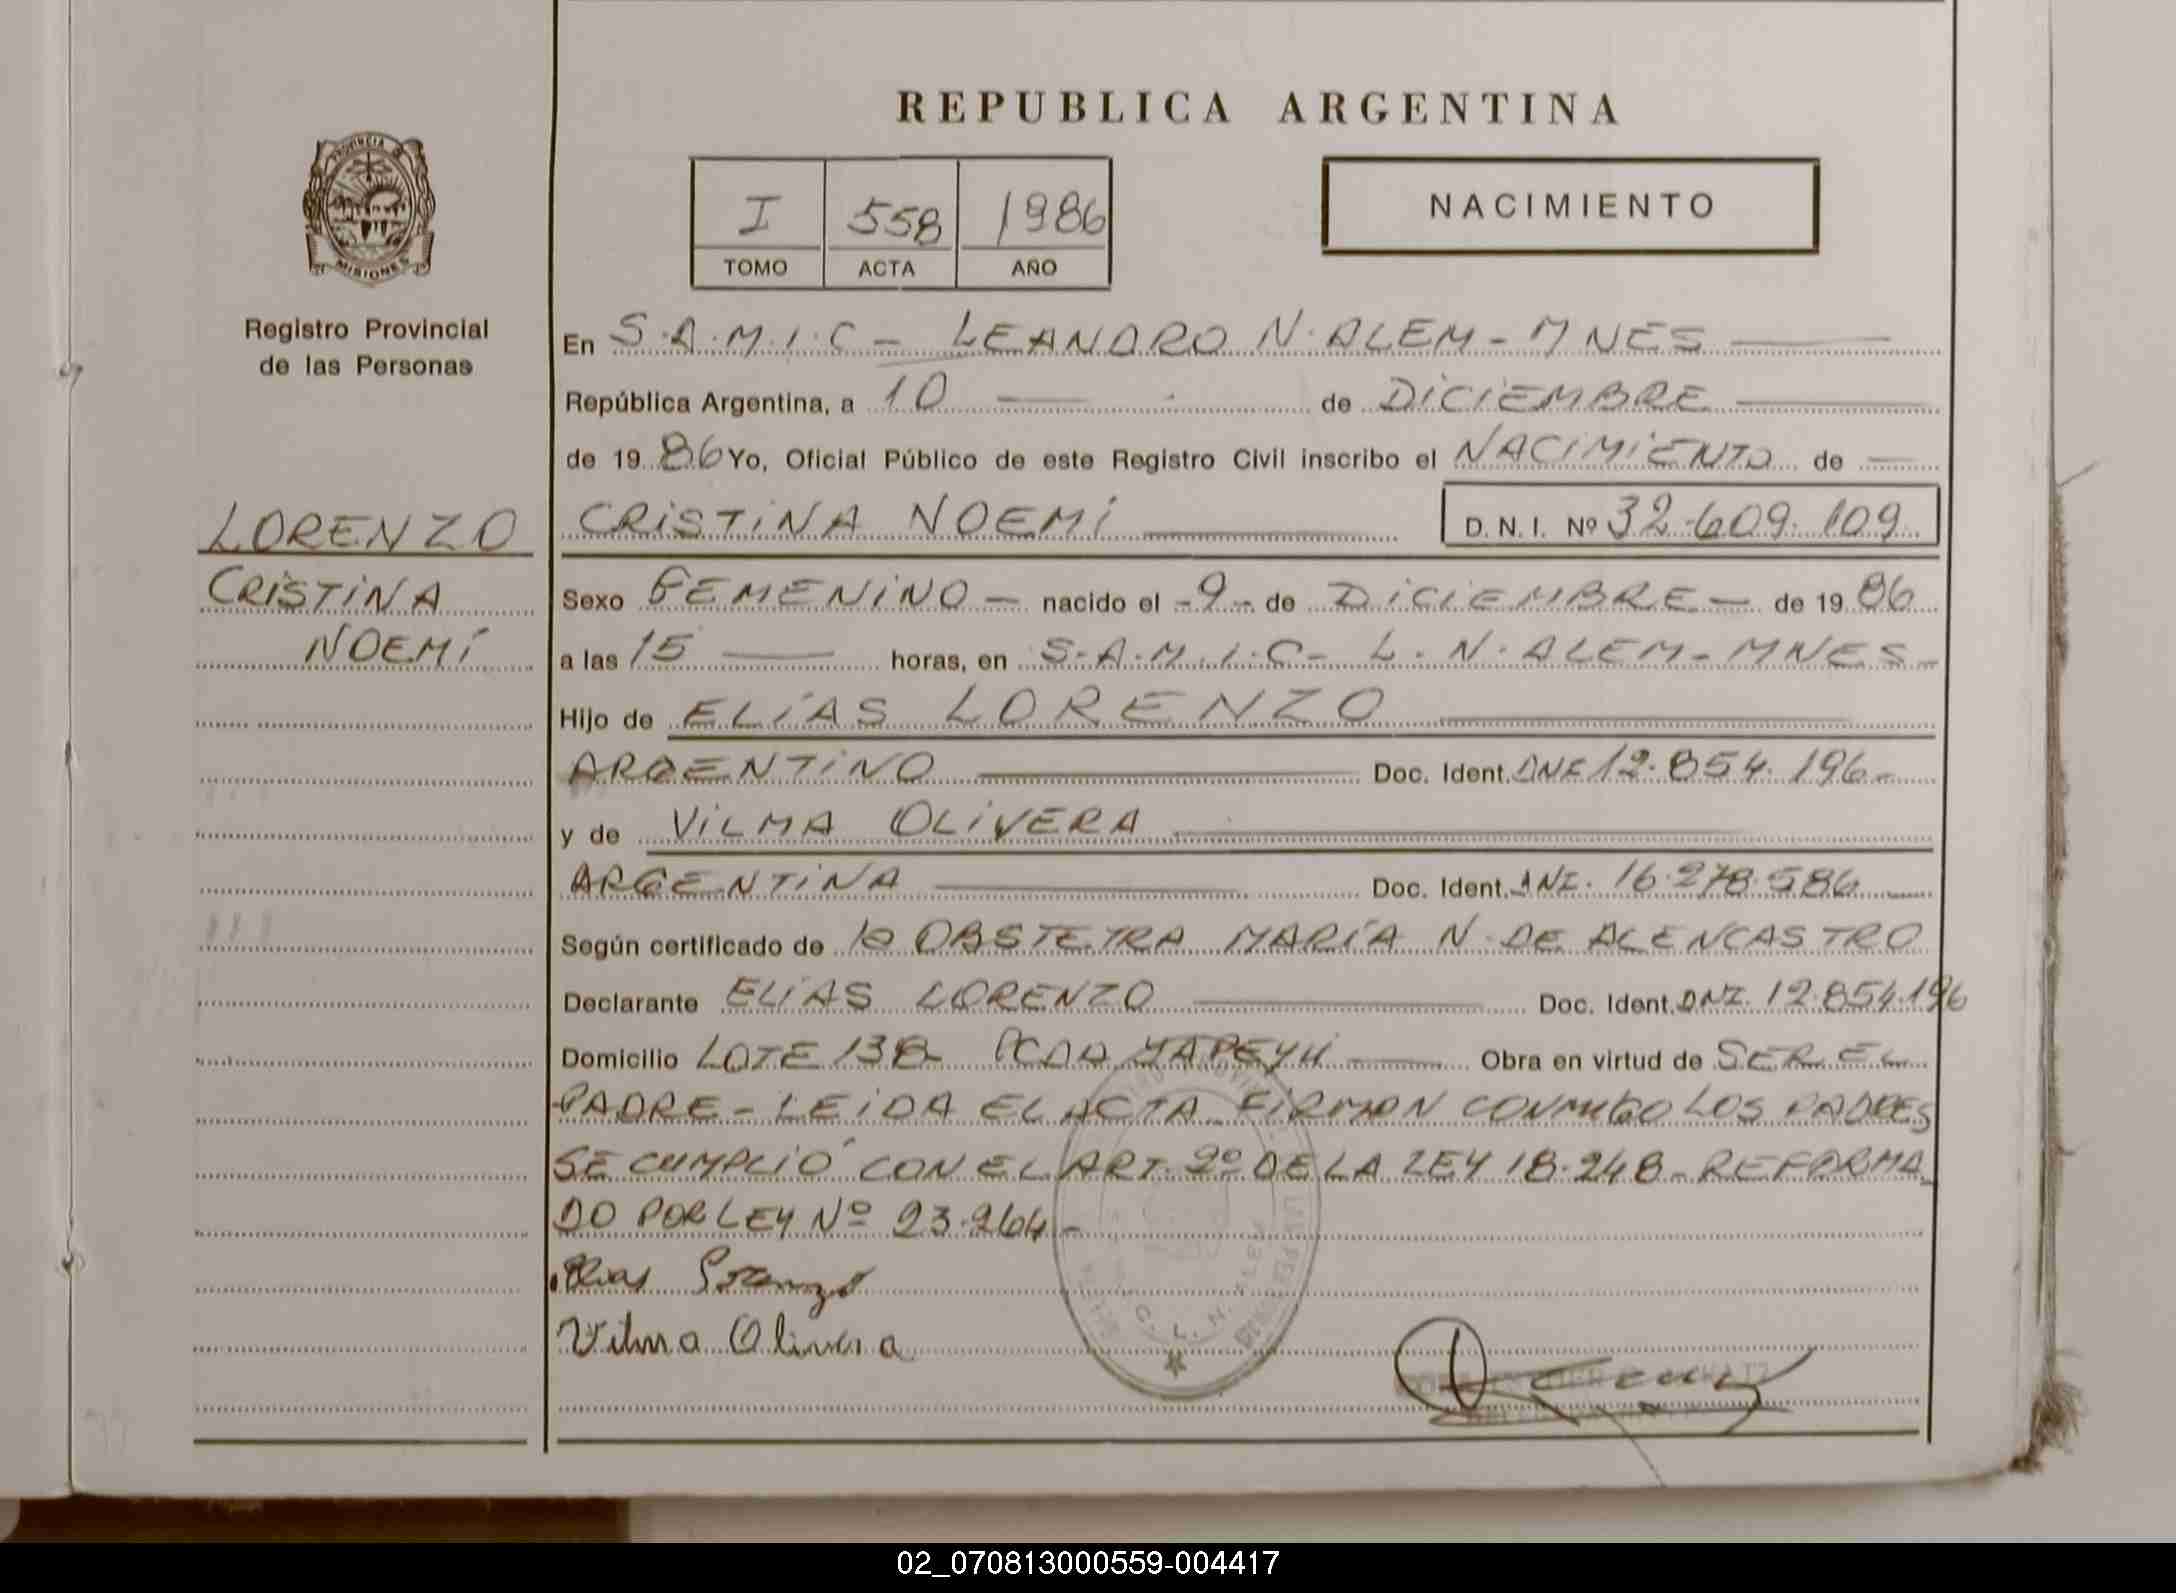 REPUBLICA ARGENTINA
PROVINCIA DE
MISIONES
Registro Provincial
de las Personas
I 558 1986
TOMO ACTA AÑO
NACIMIENTO
En S.A.M.I.C - LEANDRO N. ALEM - MNES
República Argentina, a 10 de DICIEMBRE
de 19 86 Yo, Oficial Público de este Registro Civil inscribo el NACIMIENTO de
LORENZO
CRISTINA
NOEMÍ
CRISTINA NOEMÍ D. N. I. Nº 32.609.109
Sexo FEMENINO - nacido el -9- de DICIEMBRE - de 19 86
a las 15 horas, en S.A.M.I.C - L. N. ALEM - MNES -
Hijo de ELÍAS LORENZO
ARGENTINO Doc. Ident. DNI 12.854.196 -
y de VILMA OLIVERA
ARGENTINA Doc. Ident. DNI. 16.278.586
Según certificado de la OBSTETRA MARÍA N. DE ALENCASTRO
Declarante ELÍAS LORENZO Doc. Ident. DNI. 12.854.196
Domicilio LOTE 138 - PCDA YAPEYÚ Obra en virtud de SER EL
PADRE - LEIDA EL ACTA FIRMAN CONMIGO LOS PADRES
SE CUMPLIÓ CON EL ART. 2º DE LA LEY 18.248 - REFORMA
DO POR LEY Nº 23.264 -
Elias Lorenzo
Vilma Olivera
L. N. ALEM
02_070813000559-004417